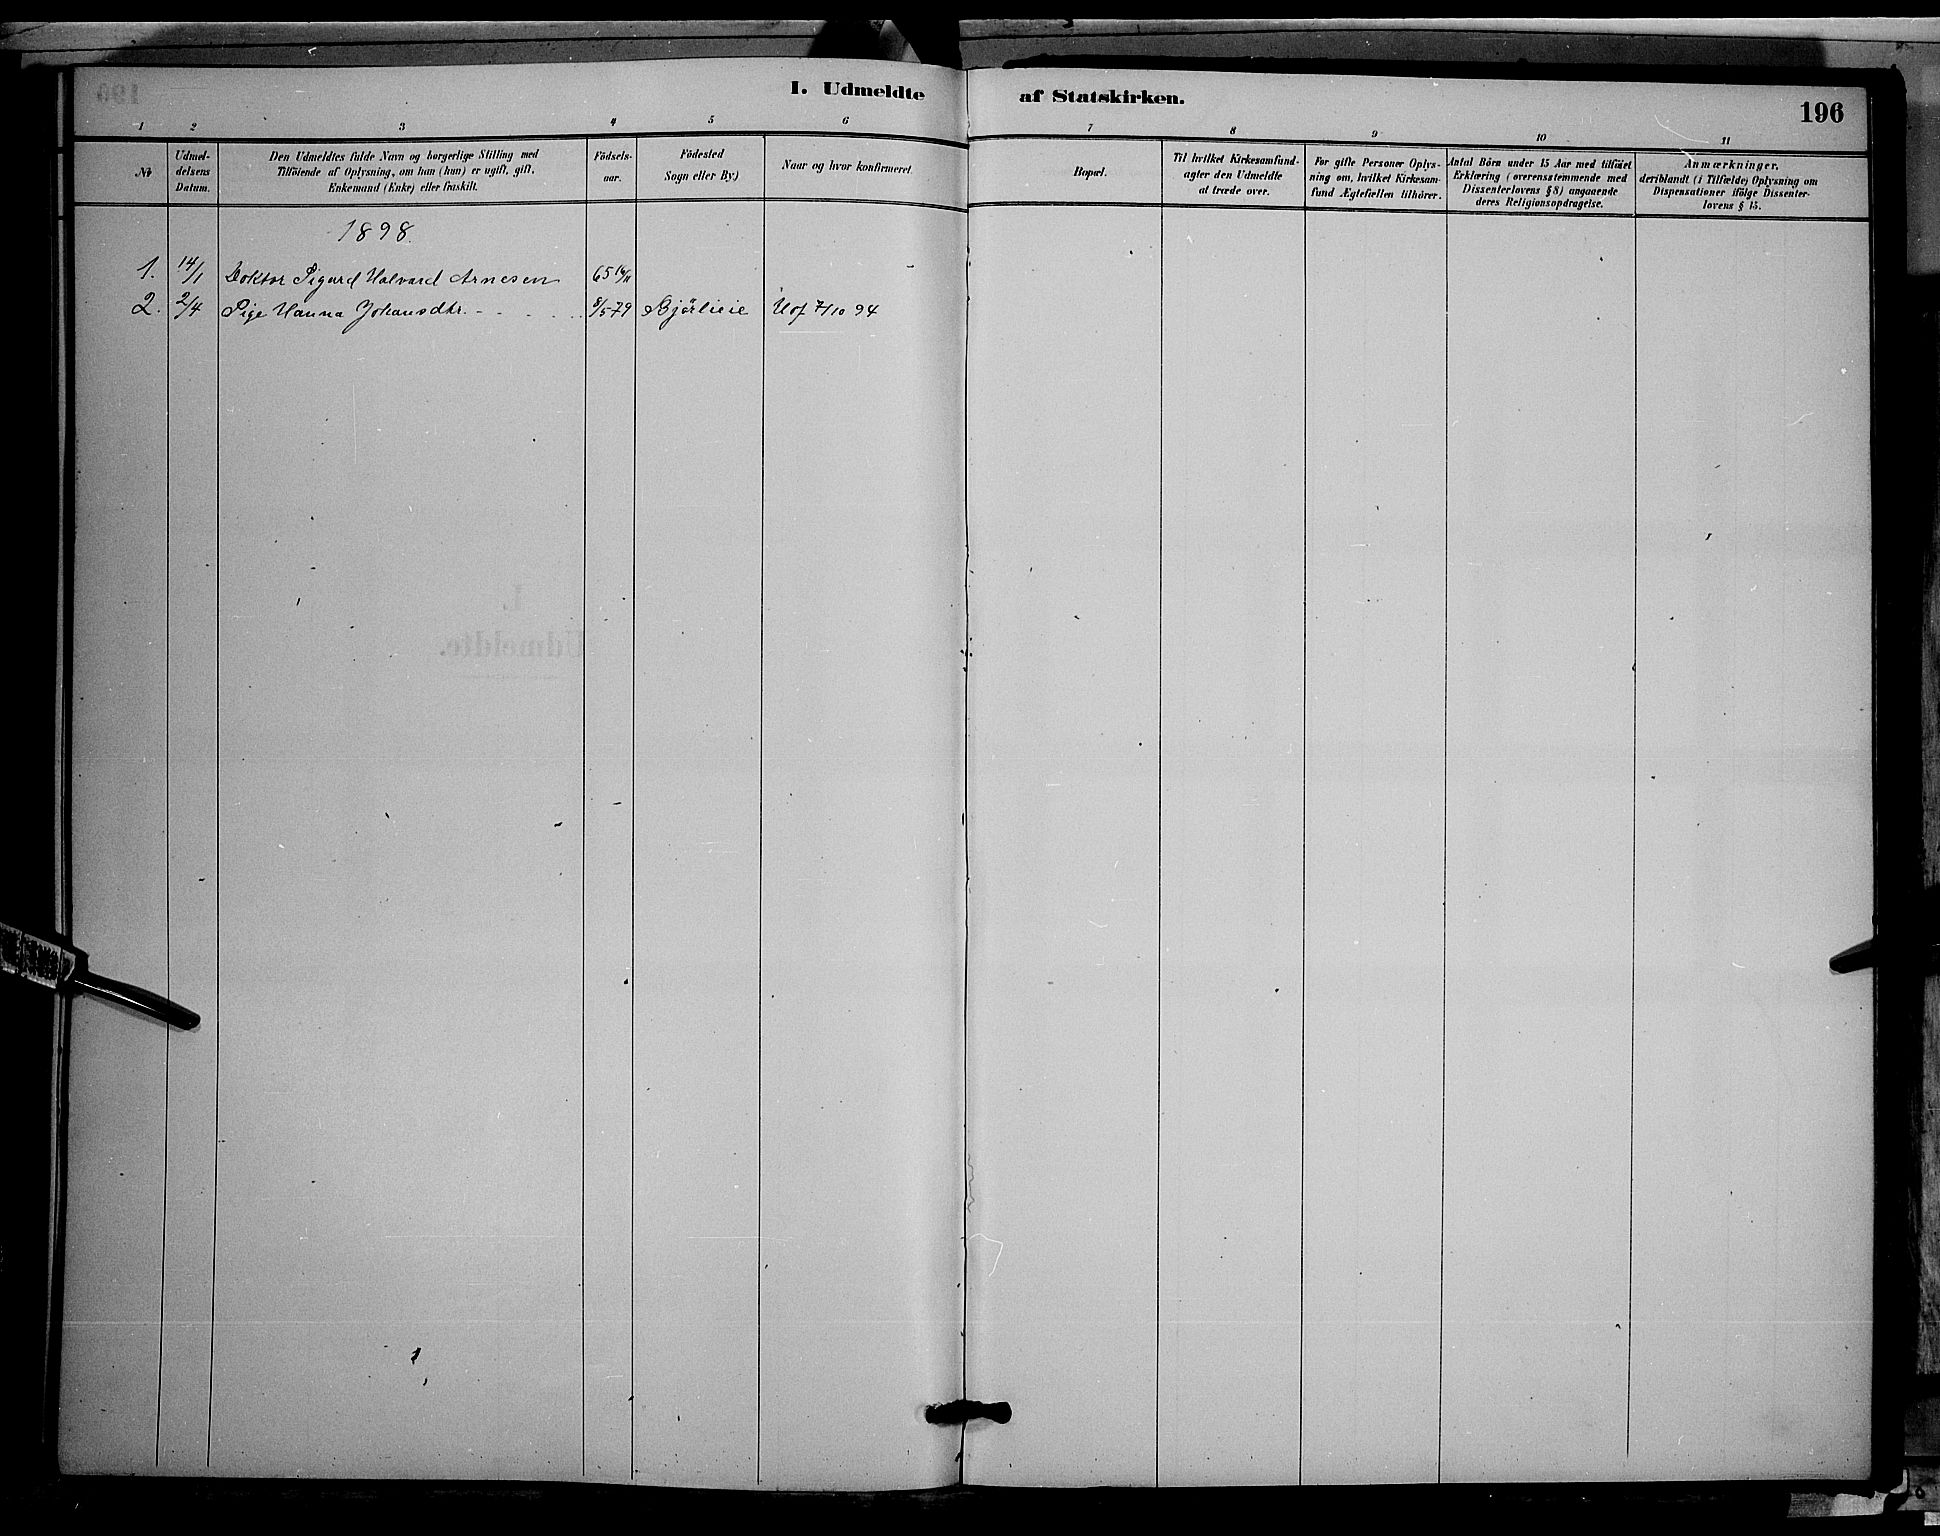 I. Udmeldte af Statskirken.
196
1 2 3 4 5 6 7 8 9 10 11
№
Udmel-
delsens
Datum.
Den Udmeldtes fulde Navn og borgerlige Stilling med
Tilföiende af Oplysning, om han (hun) er ugift, gift,
Enkemand (Enke) eller fraskilt.
Födsels-
aar.
Födested
Sogn eller By.)
Naar og hvor konfirmeret.
Bopæl.
Til hvilket Kirkesamfund-
agter den Udmeldte
at træde over.
For gifte Personer Oplys-
ning om, hvilket Kirkesam-
fund Ægtefællen tilhörer.
Antal Börn under 15 Aar med tilföiet
Erklæring (overensstemmende med
Dissenterlovens § 8) angaaende
deres Religionsopdragelse.
Anmærkninger.
deriblandt (i Tilfælde) Oplysning om
Dispensationer ifölge Dissenter-
lovens § 15.
1898.
1. 14/1 Doktor Sigurd Halvard Arnesen 65 16/11
2. 2/4 Pige Hanna Johansdtr. 8/5 79 Bjørlieie Hof 7/10 94